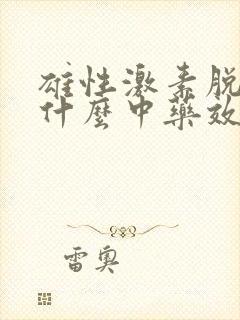 雄性激素脱
什麼中藥效
雷奧